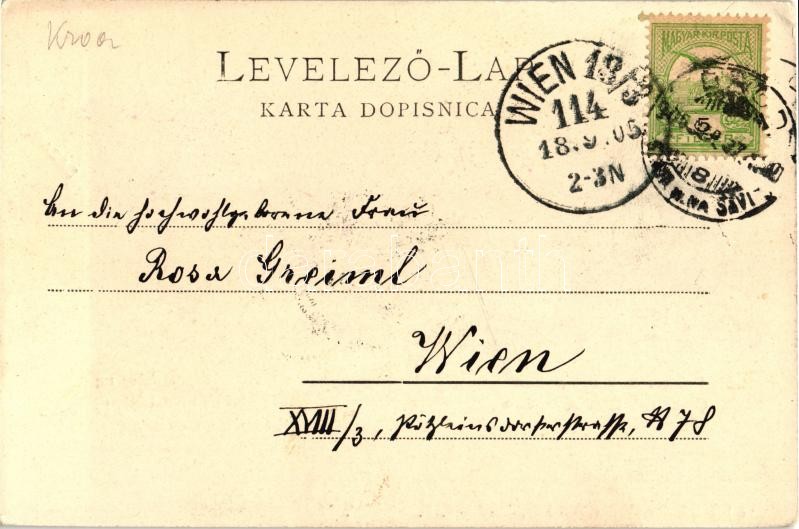 Kroa
LEVELEZŐ-LAP
KARTA DOPISNICA
MAGYAR KIR. POSTA
WIEN 18/3
114
18.9.05
2-3N
N.NA SAVI
An die hochwohlgeborene Frau
Rosa Greiml
Wien
XVIII/3, Pötzleinsdorferstrasse, N 78